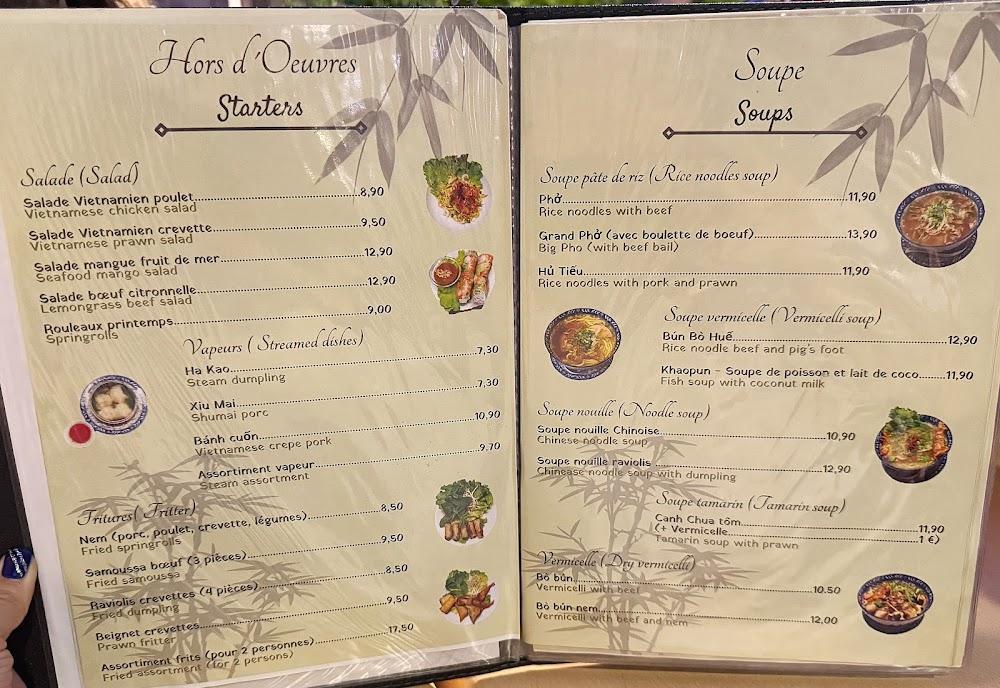 Hors d'Oeuvres
Starters
Salade (Salad)
Salade Vietnamien poulet..........8,90
Vietnamese chicken salad
Salade Vietnamien crevette..........9,50
Vietnamese prawn salad
Salade mangue fruit de mer..........12,90
Seafood mango salad
Salade bœuf citronnelle..........12,90
Lemongrass beef salad
Rouleaux printemps..........9,00
Springrolls
Vapeurs ( Streamed dishes)
Ha Kao..........7,30
Steam dumpling
Xiu Mai..........7,30
Shumai porc
Bánh cuốn..........10,90
Vietnamese crepe pork
Assortiment vapeur..........9,70
Steam assortment
Fritures( Fritter)
Nem (porc, poulet, crevette, légumes)..........8,50
Fried springrolls
Samoussa bœuf (3 pièces)..........9,50
Fried samoussa
Raviolis crevettes (4 pièces)..........8,50
Fried dumpling
Beignet crevettes..........9,50
Prawn fritter
Assortiment frits (pour 2 personnes)..........17,50
Fried assortment (for 2 persons)
Soupe
Soups
Soupe pâte de riz (Rice noodles soup)
Phở..........11,90
Rice noodles with beef
Grand Phở (avec boulette de boeuf)..........13,90
Big Pho (with beef bail)
Hủ Tiếu..........11,90
Rice noodles with pork and prawn
Soupe vermicelle (Vermicelli soup)
Bún Bò Huế..........12,90
Rice noodle beef and pig's foot
Khaopun - Soupe de poisson et lait de coco..........11,90
Fish soup with coconut milk
Soupe nouille (Noodle soup)
Soupe nouille Chinoise..........10,90
Chinese noodle soup
Soupe nouille raviolis..........12,90
Chinease noodle soup with dumpling
Soupe tamarin (Tamarin soup)
Canh Chua tôm..........11,90
(+ Vermicelle..........1 €)
Tamarin soup with prawn
Vermicelle (Dry vermicelli)
Bò bún..........10.50
Vermicelli with beef
Bò bún nem..........12,00
Vermicelli with beef and nem